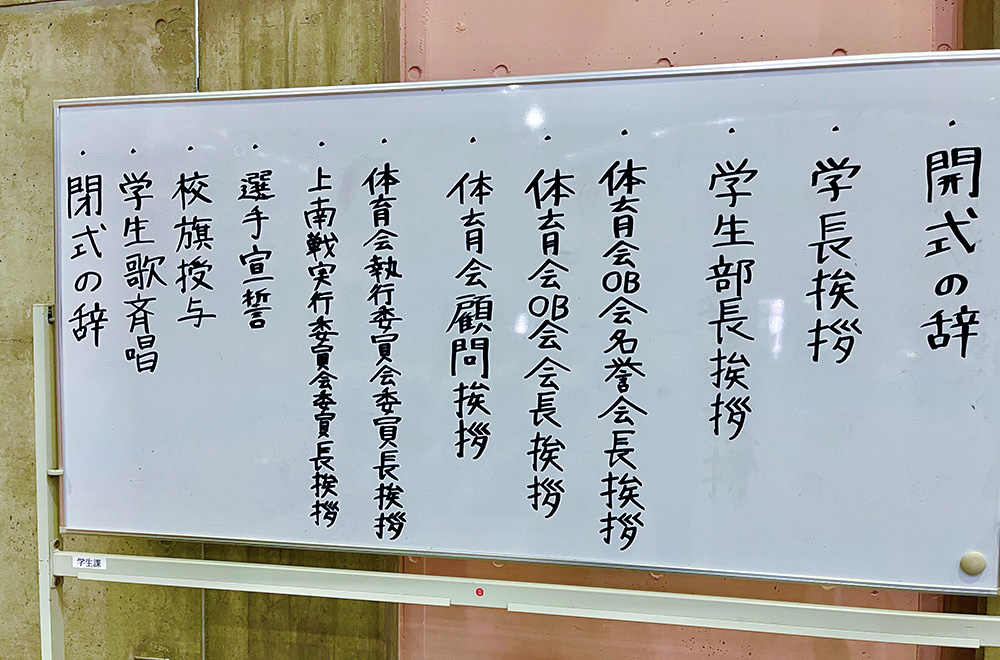 ・開式の辞
・学長挨拶
・学生部長挨拶
・体育会OB会名誉会長挨拶
・体育会OB会会長挨拶
・体育会顧問挨拶
・体育会執行委員会委員長挨拶
・上南戦実行委員会委員長挨拶
・選手宣誓
・校旗授与
・学生歌斉唱
・閉式の辞
学生課